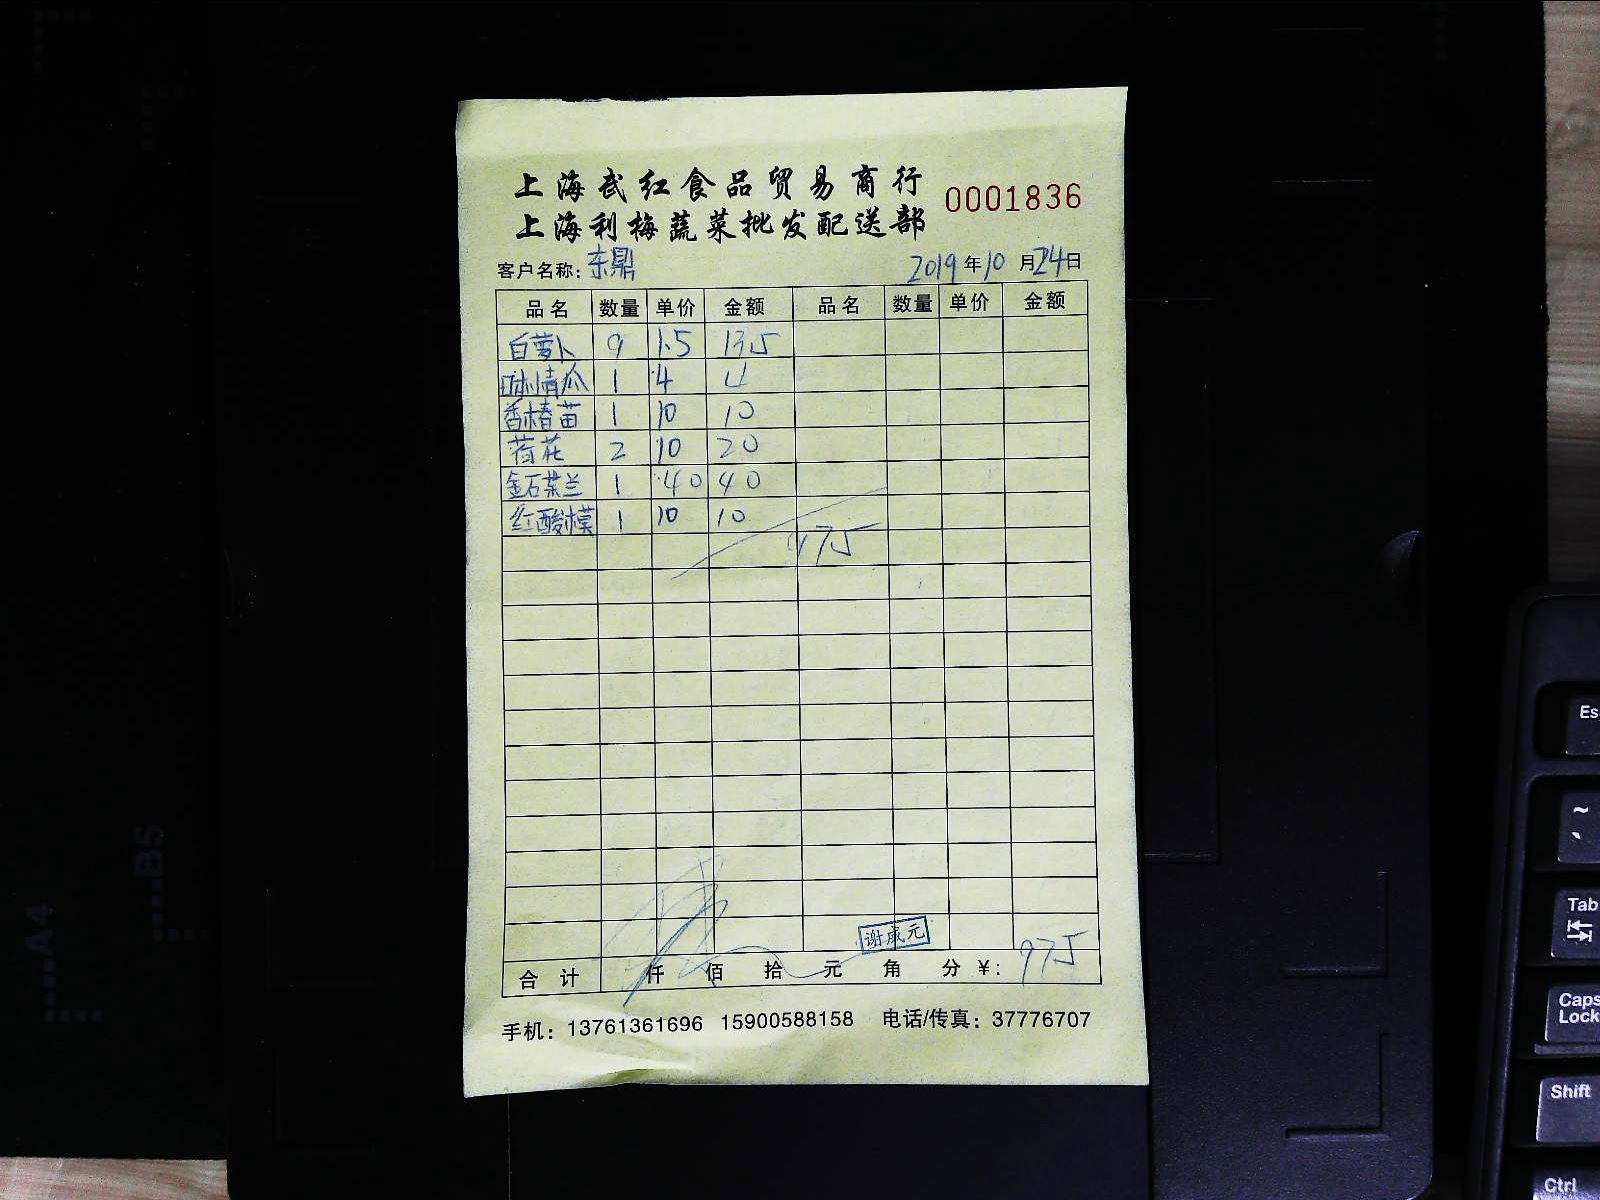 上海武红食品贸易商行
0001836
上海利梅蔬菜批发配送部
客户名称:东鼎 2019年10月24日
品名 数量 单价 金额 品名 数量 单价 金额
白萝卜 9 1.5 135
1 4 4
香椿苗 1 10 10
荷花 2 10 20
金石斛兰 1 40 40
红酸模 1 10 10
975
谢康元
合计 仟 佰 拾 元 角 分 ¥: 975
手机: 13761361696 15900588158 电话/传真: 37776707
A4
B5
Es
~
`
Tab
Caps
Lock
Shift
Ctrl